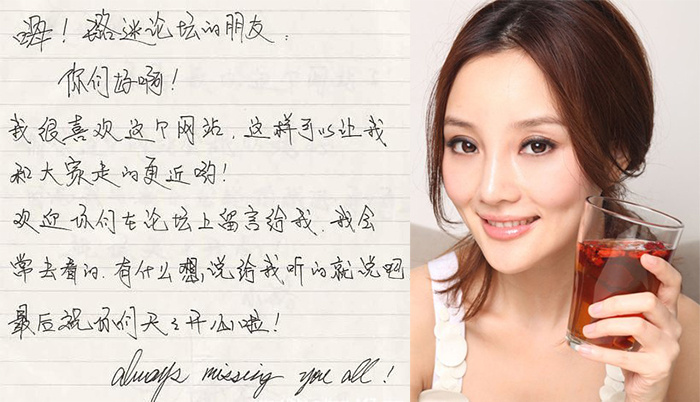 嗨！璐迷论坛的朋友：
你们好啊！
我很喜欢这个网站，这样可以让我
和大家走的更近哟！
欢迎你们在论坛上留言给我，我会
常去看的，有什么想说给我听的就说吧
最后祝你们天天开心啦！
always missing you all!